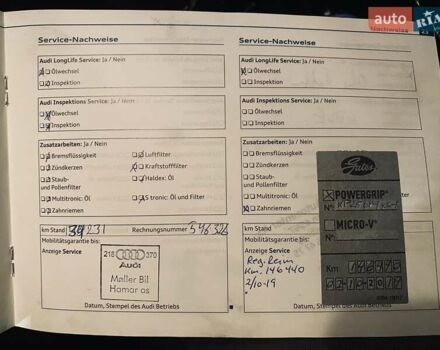 auto
RIA
Service-Nachweise
Audi LongLife Service: Ja / Nein
Ölwechsel
Inspektion
Audi Inspektions Service: Ja / Nein
Ölwechsel
Inspektion
Zusatzarbeiten: Ja / Nein
Bremsflüssigkeit
Luftfilter
Zündkerzen
Kraftstofffilter
Staub-
und Pollenfilter
Haldex: Öl
Multitronic: Öl
S tronic: Öl und Filter
Zahnriemen
km Stand
Rechnungsnummer
Mobilitätsgarantie bis:
Anzeige Service
218 370
Audi
Møller Bil
Hamar as
Datum, Stempel des Audi Betriebs
Nachweise
Service-Nachweise
Audi LongLife Service: Ja / Nein
Ölwechsel
Inspektion
Audi Inspektions Service: Ja / Nein
Ölwechsel
Inspektion
Zusatzarbeiten: Ja / Nein
Bremsflüssigkeit
Zündkerzen
Staub-
und Pollenfilter
Multitronic: Öl
Zahnriemen
km Stand
Mobilitätsgarantie bis:
Anzeige Service
Reg. Reim
Km. 146440
2/10-19
Datum, Stempel des Audi Betriebs
Gates
POWERGRIP
N°
MICRO-V
N°
Km